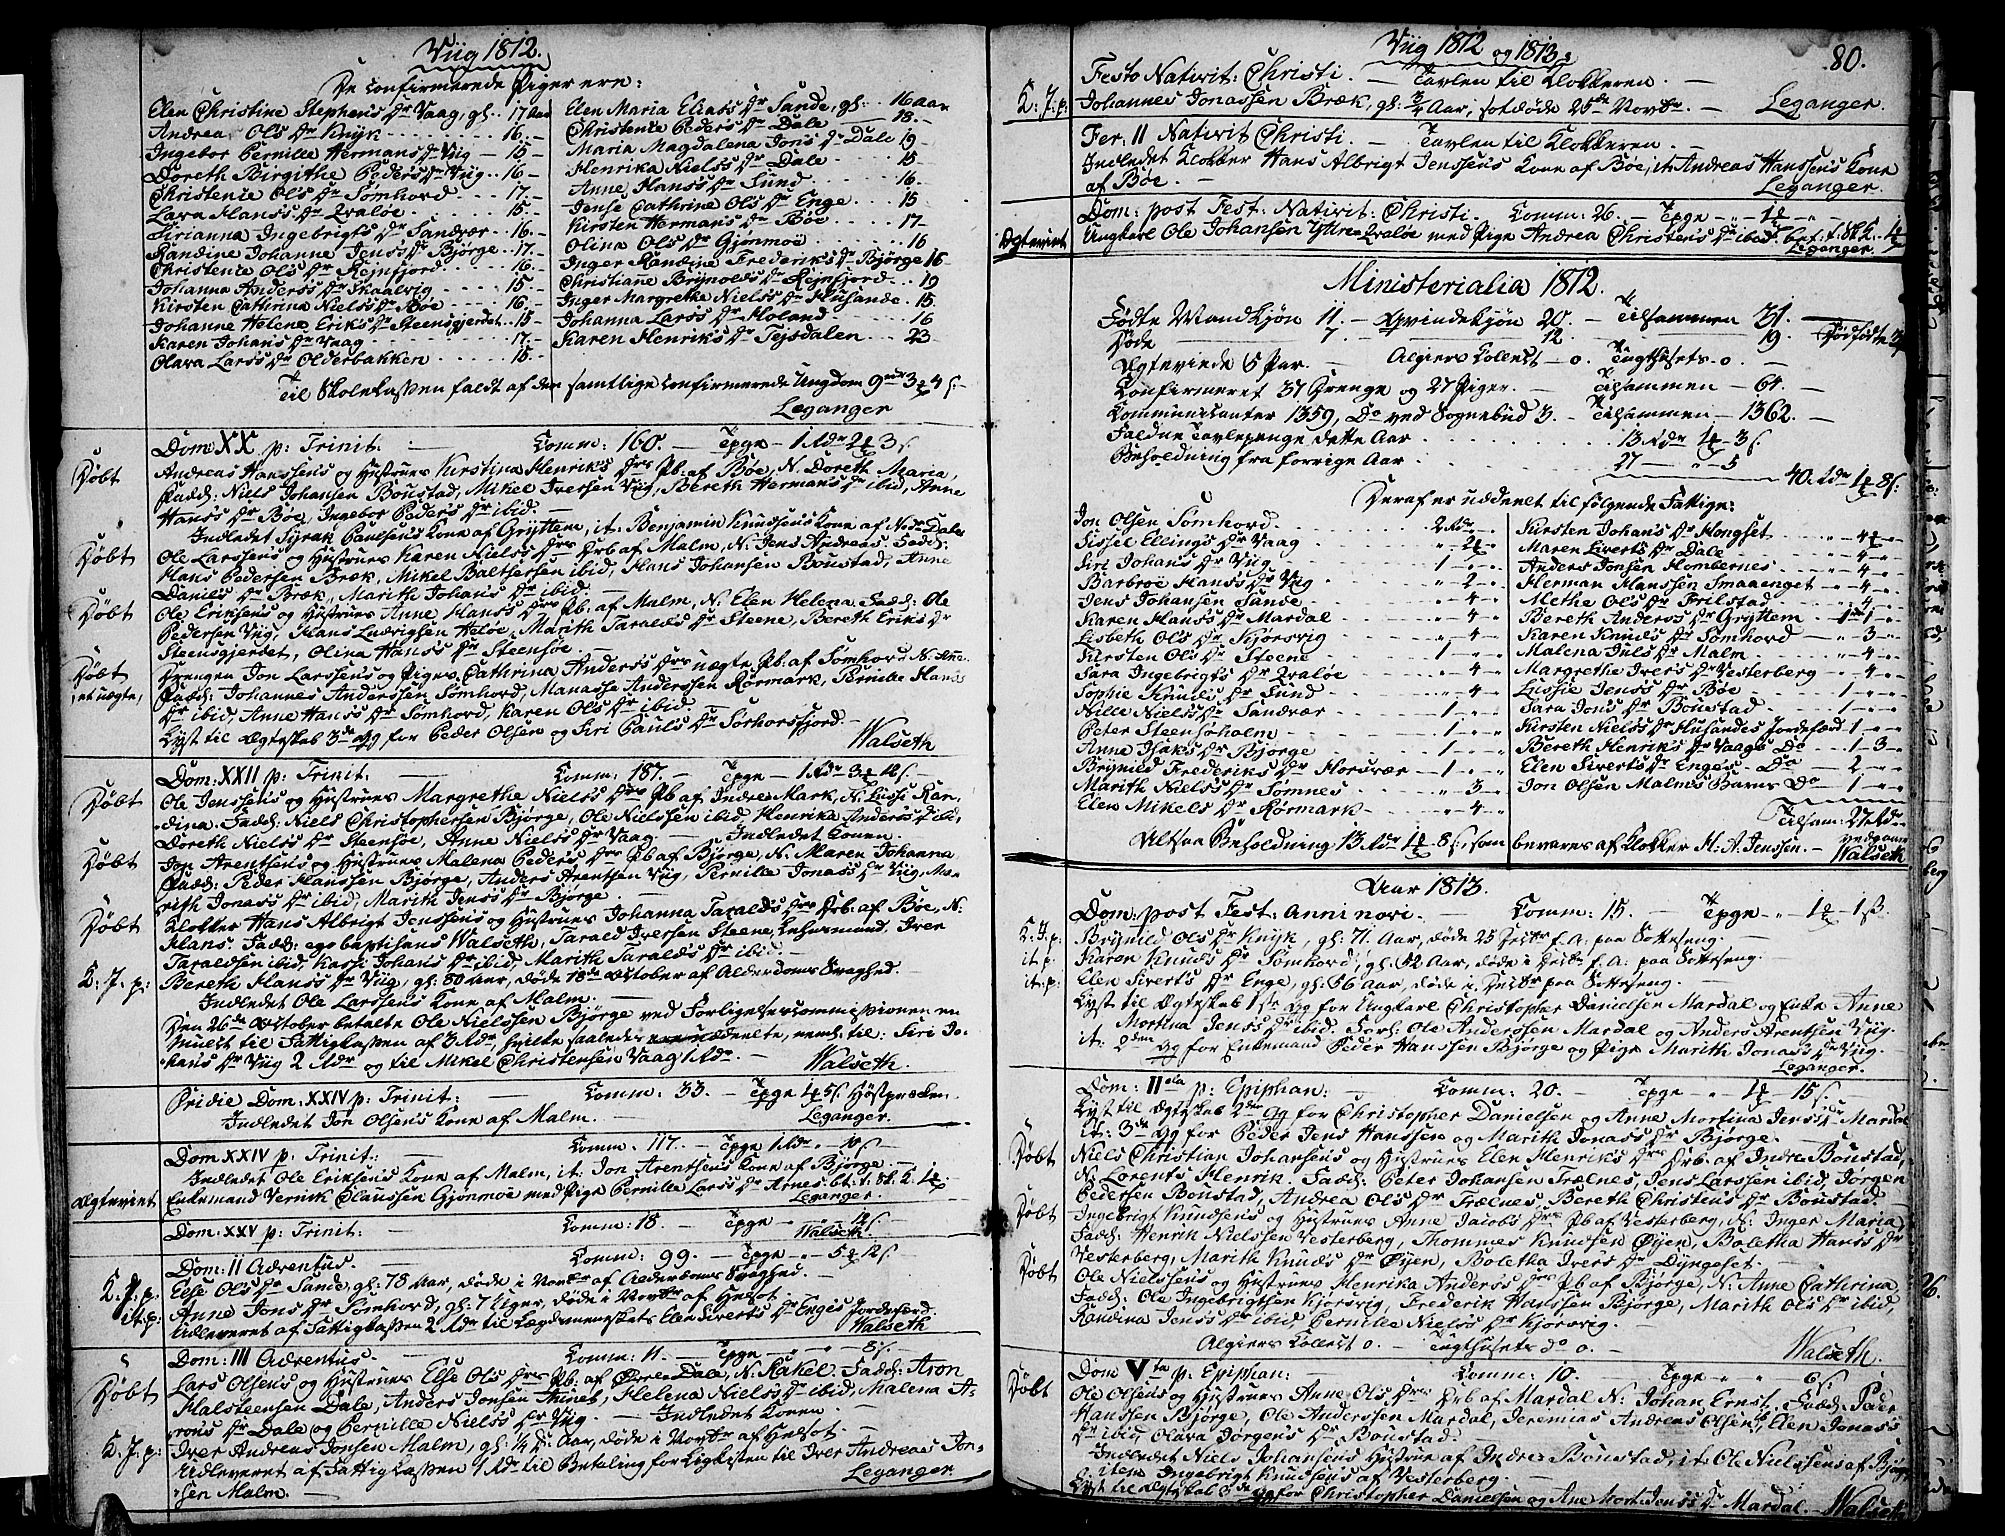 Viig 1812.
De confirmerede Piger ere:
Elen Christine Stephens Dr Vaag, gl. 17 Aar
Andrea Ols Dr Knyk 16
Ingebor Pernille Hermans Dr Viig 15
Doreth Birgithe Peders Dr Viig 16
Christense Ols Dr Sømhord 17
Lava Hans's Dr Qvaløe 15
Sirianna Ingebrigts Dr Sandvær 16
Randine Johanne Jens's Dr Bjørge 17
Christense Ols Dr Rejnfjord 16
Johanna Anders's Dr Skaalvig 15
Kirsten Cathrina Niels's Dr Bøe 16
Johanne Helene Eriks Dr Steensgjerdet 15
Karen Johans Dr Vaag 17
Olava Lars's Dr Olderbakken 15
Elen Maria Elias's Dr Sande, gl. 16 Aar
Christense Peders Dr Dale 18
Maria Magdalena Jons Dr Dale 19
Henrika Niels's Dr Dale 15
Anne Hans's Dr Sund 16
Jense Cathrine Ols Dr Enge 15
Kirsten Hermans Dr Bøe 17
Olina Ols Dr Gjønmoe 16
Inger Randine Frederiks Dr Bjørge 16
Christiane Brynolds Dr Rejnfjord 19
Inger Margrethe Niels's Dr Husande 15
Johanna Lars's Dr Holand 16
Karen Henriks Dr Tejsdalen 23
Til Skolekassen faldt af den samtlige confirmerede Ungdom
Leganger
Dom XX p: Trinit: Comm: 160. Tpge 1 Rdr 2 3 s
Døbt Andreas Hanssens og Hustrues Kirstina Henriks Drs Pb. af Bøe, N. Doreth Maria,
Fadd: Niels Johansen Boustad, Mikel Iversen Viig, Bereth Hermans Dr ibid, Anne
Hans's Dr Bøe, Ingebor Peders Dr ibid.
Indledet Syrak Paulsens Kone af Gryttem, it. Benjamin Knudsens Kone af Dale
Døbt Ole Larssens og Hustrues Karen Niels's Drs Drb af Malm, N. Jens Andreas. Fadd:
Hans Pedersen Bræk, Mikel Baltsersen ibid, Hans Johansen Boustad, Anne
Daniels Dr Bræk, Marith Johans Dr ibid.
Døbt Ole Eriksens og Hustrues Anne Hans's Drs Pb. af Malm, N. Elen Helena. Fadd: Ole
Pedersen Viig, Hans Ludvigsen Heløe, Marith Taralds Dr Steene, Bereth Eriks Dr
Steensgjerdet, Olina Hans's Dr Steensøe.
Døbt et uægte, Drengen Jon Larssens og Pigen Cathrina Anders's Drs uægte Pb. af Sømhord N. Anne.
Fadd: Johannes Anderssen Sømhord, Manasse Anderssen Rørmark, Pernille Hans's
Dr ibid, Anne Hans's Dr Sømhord, Karen Ols Dr ibid.
Lyst til Ægteskab 3de Gg for Peder Olsen og Siri Pauls Dr Sørhorsfjord.
Walseth
Dom: XXII p: Trinit: Comm: 187. Tpge 1 Rdr 3 12 s
Døbt Ole Jenssens og Hustrues Margrethe Niels's Drs Pb af Indre Mark, N. Lucie Ran-
dina. Fadd: Niels Christophersen Bjørge, Ole Nielssen ibid, Henrika Anders's Dr ibid,
Doreth Niels's Dr Steensøe, Anne Niels's Dr Vaag. Indledet Konen.
Døbt Jon Arentsens og Hustrues Malena Peders Drs Pb af Bjørge, N. Maren Johanna
Fadd: Peder Hanssen Bjørge, Anders Arentsen Viig, Pernille Jonas's Dr Viig, Ma-
rith Jonas's Dr ibid, Marith Jens's Dr Bjørge.
Døbt Klokker Hans Albrigt Jenssens og Hustrues Johanna Taralds Drs Drb. af Bøe, N:
Hans. Fadd: ego baptisans Walseth, Tarald Iversen Steene, Lehnsmand Iver
Taraldsen ibid, Karsi Johans Dr ibid, Marith Taralds Dr ibid.
K. J. p: Bereth Hans's Dr Viig, gl: 80 Aar, døde 18de October af Alderdoms Svaghed.
Indledet Ole Larssens Kone af Malm.
Den 26de October betalte Ole Nielssen Bjørge ved Forligelsescommissionen en
Mulct til Fattigkassen af 3 Rdr, hvilke saaledes uddeelte, neml. til: Siri Jo-
hans Dr Viig 2 Rdr og til Mikel Christensen Vaag 1 Rdr. Walseth.
Pridie Dom: XXIV p: Trinit: Comm: 33. Tpge 4 5 s Høstpræken.
Indledet Jon Olsens Kone af Malm. Leganger.
Dom XXIV p: Trinit: Comm. 117. Tpge 1 Rdr 10 s
Indledet Ole Eriksens Kone af Malm, it. Jon Arentsens Kone af Bjørge.
Ægteviet Enkemand Vernik Claussen Gjønmoe med Pige Pernille Lars's Dr Arnes. bt. t. Sk. 2.
Leganger
Dom: XXV p: Trinit: Comm: 18. Tpge 12 s
Walseth.
Dom: II Adventus. Comm: 99. Tpge 5 12 s
K. J. p. Else Ols Dr Sande, gl: 78 Aar, døde i Novbr af Alderdoms Svaghed.
it: p: Anne Jons Dr Sømhord, gl: 7 Uger, døde i Novbr af Helsot.
Udleveret af Fattigkassen 2 Rdr til Lægdmenneskets Elen Siverts Dr Enges Jordefærd.
Walseth
Dom: III Adventus. Comm: 11. Tpge 8 s
Døbt Lars Olsens og Hustrues Else Ols Drs Pb. af Øvre Dale, N. Rakel. Fadd: Aron
Halsteensen Dale, Anders Jonsen ibid, Helena Niels's Dr ibid, Malena A-
rons Dr Dale og Pernille Niels's Dr Viig. Indledet Konen.
K. J. p: Iver Andreas Jonsen Malm, gl: 1/4 Aar, døde i Novbr af Helsot.
Udleveret af Fattigkassen 1 Rdr til Betaling for Ligkisten til Iver Andreas Jon-
sen Malm. Leganger
Viig 1812 og 1813. 80.
Festo Nativit: Christi. Tavlen til Klokkeren.
K: J: p: Johannes Jonassen Bræk, gl: 3/4 Aar, sotdøde 25de Novbr. Leganger.
Fer: II Nativit Christi. Tavlen til Klokkeren.
Indledet Klokker Hans Albrigt Jenssens Kone af Bøe, it. Andreas Hanssens Kone
af Bøe. Leganger.
Dom: post Fest: Nativit: Christi. Comm: 26. Tpge
Ægteviet Ungkarl Ole Johansen Yttre Qvaløe med Pige Andrea Christens Dr ibid. bet. t. Sk.
Leganger.
Ministerialia 1812.
Fødte Mandkjøn 11. Qvindekjøn 20. Tilsammen 31.
Døde 7. 12. 19. Dødfødte
Ægteviede 5 Par. Algiers Collect 0. Tugthusets 0
Confirmeret 37 Drenge og 27 Piger. Tilsammen 64.
Communicanter 1359, Do ved Sognebud 3. Tilsammen 1362.
Faldne Tavlepenge dette Aar 13 Rdr 3 s
Beholdning fra forrige Aar 27 5
40 Rdr 8 s
Deraf er uddeelt til følgende Fattige:
Jon Olsen Sømhord 2 Rdr
Sissel Ellings Dr Vaag 2
Siri Johans Dr Viig 1
Barbroe Hans's Dr Viig 2
Jens Johansen Sande 4
Karen Hans's Dr Mardal 4
Lisbeth Ols Dr Kjørsvig 4
Kirsten Ols Dr Steene 1
Sara Ingebrigts Dr Qvaløe 4
Sophie Knuds Dr Sund 4
Nille Niels's Dr Sandvær 1
Peter Steensøholm 1
Anna Isaks Dr Bjørge 1
Brynild Frederiks Dr Horsvær 1
Marith Niels's Dr Sømnes 3
Elen Mikels Dr Rørmark 4
Kirsten Johans Dr Hongset 4
Maren Siverts Dr Dale 4
Anders Jonsen Hombernes 4
Herman Hanssen Smaaenget 4
Methe Ols Dr Frilstad 4
Bereth Anders's Dr Gryttem 1
Karen Knuds Dr Sømhord 3
Malena Juls Dr Malm 4
Margrethe Ivers Dr Vesterberg 4
Lissie Jens's Dr Bøe 1
Sara Jons Dr Boustad 1
Kirsten Niels's Dr Husandes Jordefærd 1
Bereth Henriks Dr Vaags Do 1 3
Elen Siverts Dr Enges Do 2
Jon Olsen Malms Barns Do 1
Tilsam: 27 Rdr
Altsaa Beholdning 13 Rdr 8 s, som bevares af Klokker H. A. Jenssen. vedgaaer
Walseth
Aar 1813.
Dom: post Fest: Anni novi. Comm: 15. Tpge 1 s
K: J. p: Brynild Ols Dr Knyk, gl: 71 Aar, døde 25 Decbr f. A: paa Sotteseng.
it. p: Karen Knuds Dr Sømhord, gl: 12 Aar, døde i Decbr f. A: paa Sotteseng.
it: p: Elen Siverts Dr Enge, gl: 56 Aar, døde i Decbr paa Sotteseng.
Lyst til Ægteskab 1ste Gg for Ungkarl Christopher Danielsen Mardal og Enke Anne
Mortina Jens's Dr ibid. Forl: Ole Anderssen Mardal og Anders Arentsen Viig.
it: 2den Gg for Enkemand Peder Hanssen Bjørge og Pige Marith Jonas's Dr Viig.
Leganger.
Dom: II p: Epiphan: Comm: 20. Tpge 15 s.
Lyst til Ægteskab 2den Gg for Christopher Danielsen og Anne Mortina Jens's Dr Mardal
it: 3de Gg for Peder Jens Hanssen og Marith Jonas's Dr Bjørge.
Døbt Niels Christian Johansens og Hustrues Elen Henriks Drs Drb. af Indre Boustad,
N. Lorents Henrik. Fadd: Peter Johansen Trælnes, Jens Larssen ibid, Jørgen
Pedersen Boustad, Andrea Ols Dr Trælnes, Bereth Christens Dr Boustad.
Døbt Ingebrigt Knudsens og Hustrues Anne Jacobs Drs Pb af Vesterberg, N. Inger Maria
Fadd: Henrik Nielssen Vesterberg, Thommes Knudsen Øyen, Boletha Hans's Dr
Vesterberg, Marith Knuds Dr Øyen, Boletha Ivers Dr Dyngeset.
Døbt Ole Nielssens og Hustrues Henrika Anders's Drs Pb af Bjørge, N: Anne Cathrina
Fadd: Ole Ingebrigtsen Kjørsvig, Frederik Hanssen Bjørge, Marith Ols Dr ibid,
Randina Jens's Dr ibid, Pernille Niels's Dr Kjørsvig.
Algiers Collect 0. Tugthusets do 0. Walseth.
Dom V ta p: Epiphan: Comm: 10. Tpge 6 s
Døbt Ole Olsens og Hustrues Anne Ols Drs Drb af Mardal N: Johan Ernst. Fadd: Peder
Hanssen Bjørge, Ole Anderssen Mardal, Jeremias Andreas Olsen ibid, Elen Jonas's
Dr ibid, Olava Jørgens Dr Boustad.
Indledet Niels Johansens Hustrue af Indre Boustad, it: Ole Nielssens af Bjørge
item Ingebrigt Knudsens af Vesterberg.
Lyst til Ægteskab 3de Gg for Christopher Danielsen og Ane Mort: Jens's Dr Mardal. Walseth